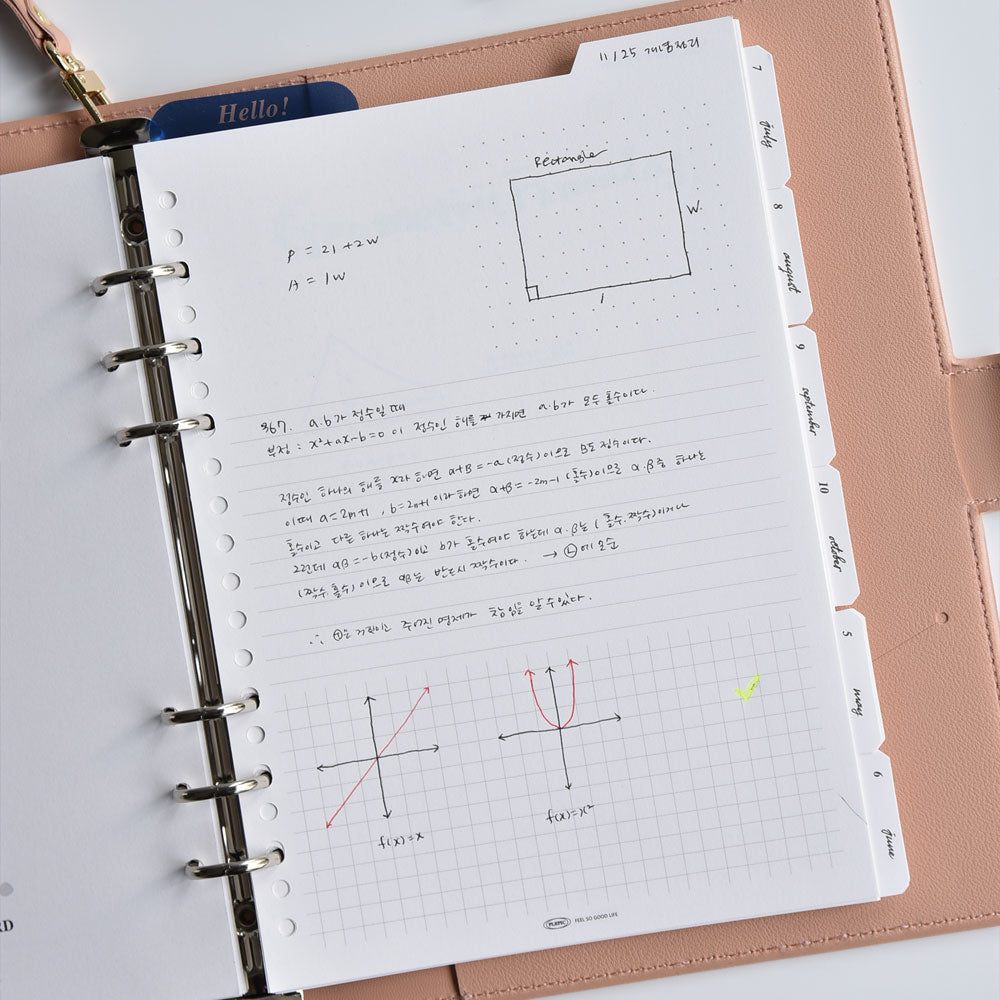 Hello!
11/25 개념정리
Rectangle
W
l
P = 2l + 2w
A = lw
367. a.b가 정수일 때
부정 : x²+ax-b=0 이 정수인 해를 가지면 a.b가 모두 홀수이다.
정수인 하나의 해를 x라 하면 α+β = -a (정수)이므로 β도 정수이다.
이때 a = 2m+1 , b = 2n+1 이라 하면 α+β = -2m-1 (홀수)이므로 α.β중 하나는
홀수이고 다른 하나는 짝수여야 한다.
그런데 αβ = -b(정수)이고 b가 홀수여야 하는데 α.β는 ( 홀수.짝수)이거나
(짝수.홀수) 이므로 αβ는 반드시 짝수이다. → ㉡에 모순
∴ ㉠은 거짓이고 주어진 명제가 참임을 알 수 있다.
f(x)=x
f(x)=x²
PLEPIC
FEEL SO GOOD LIFE
7
july
8
august
9
september
10
october
5
may
6
june
RD